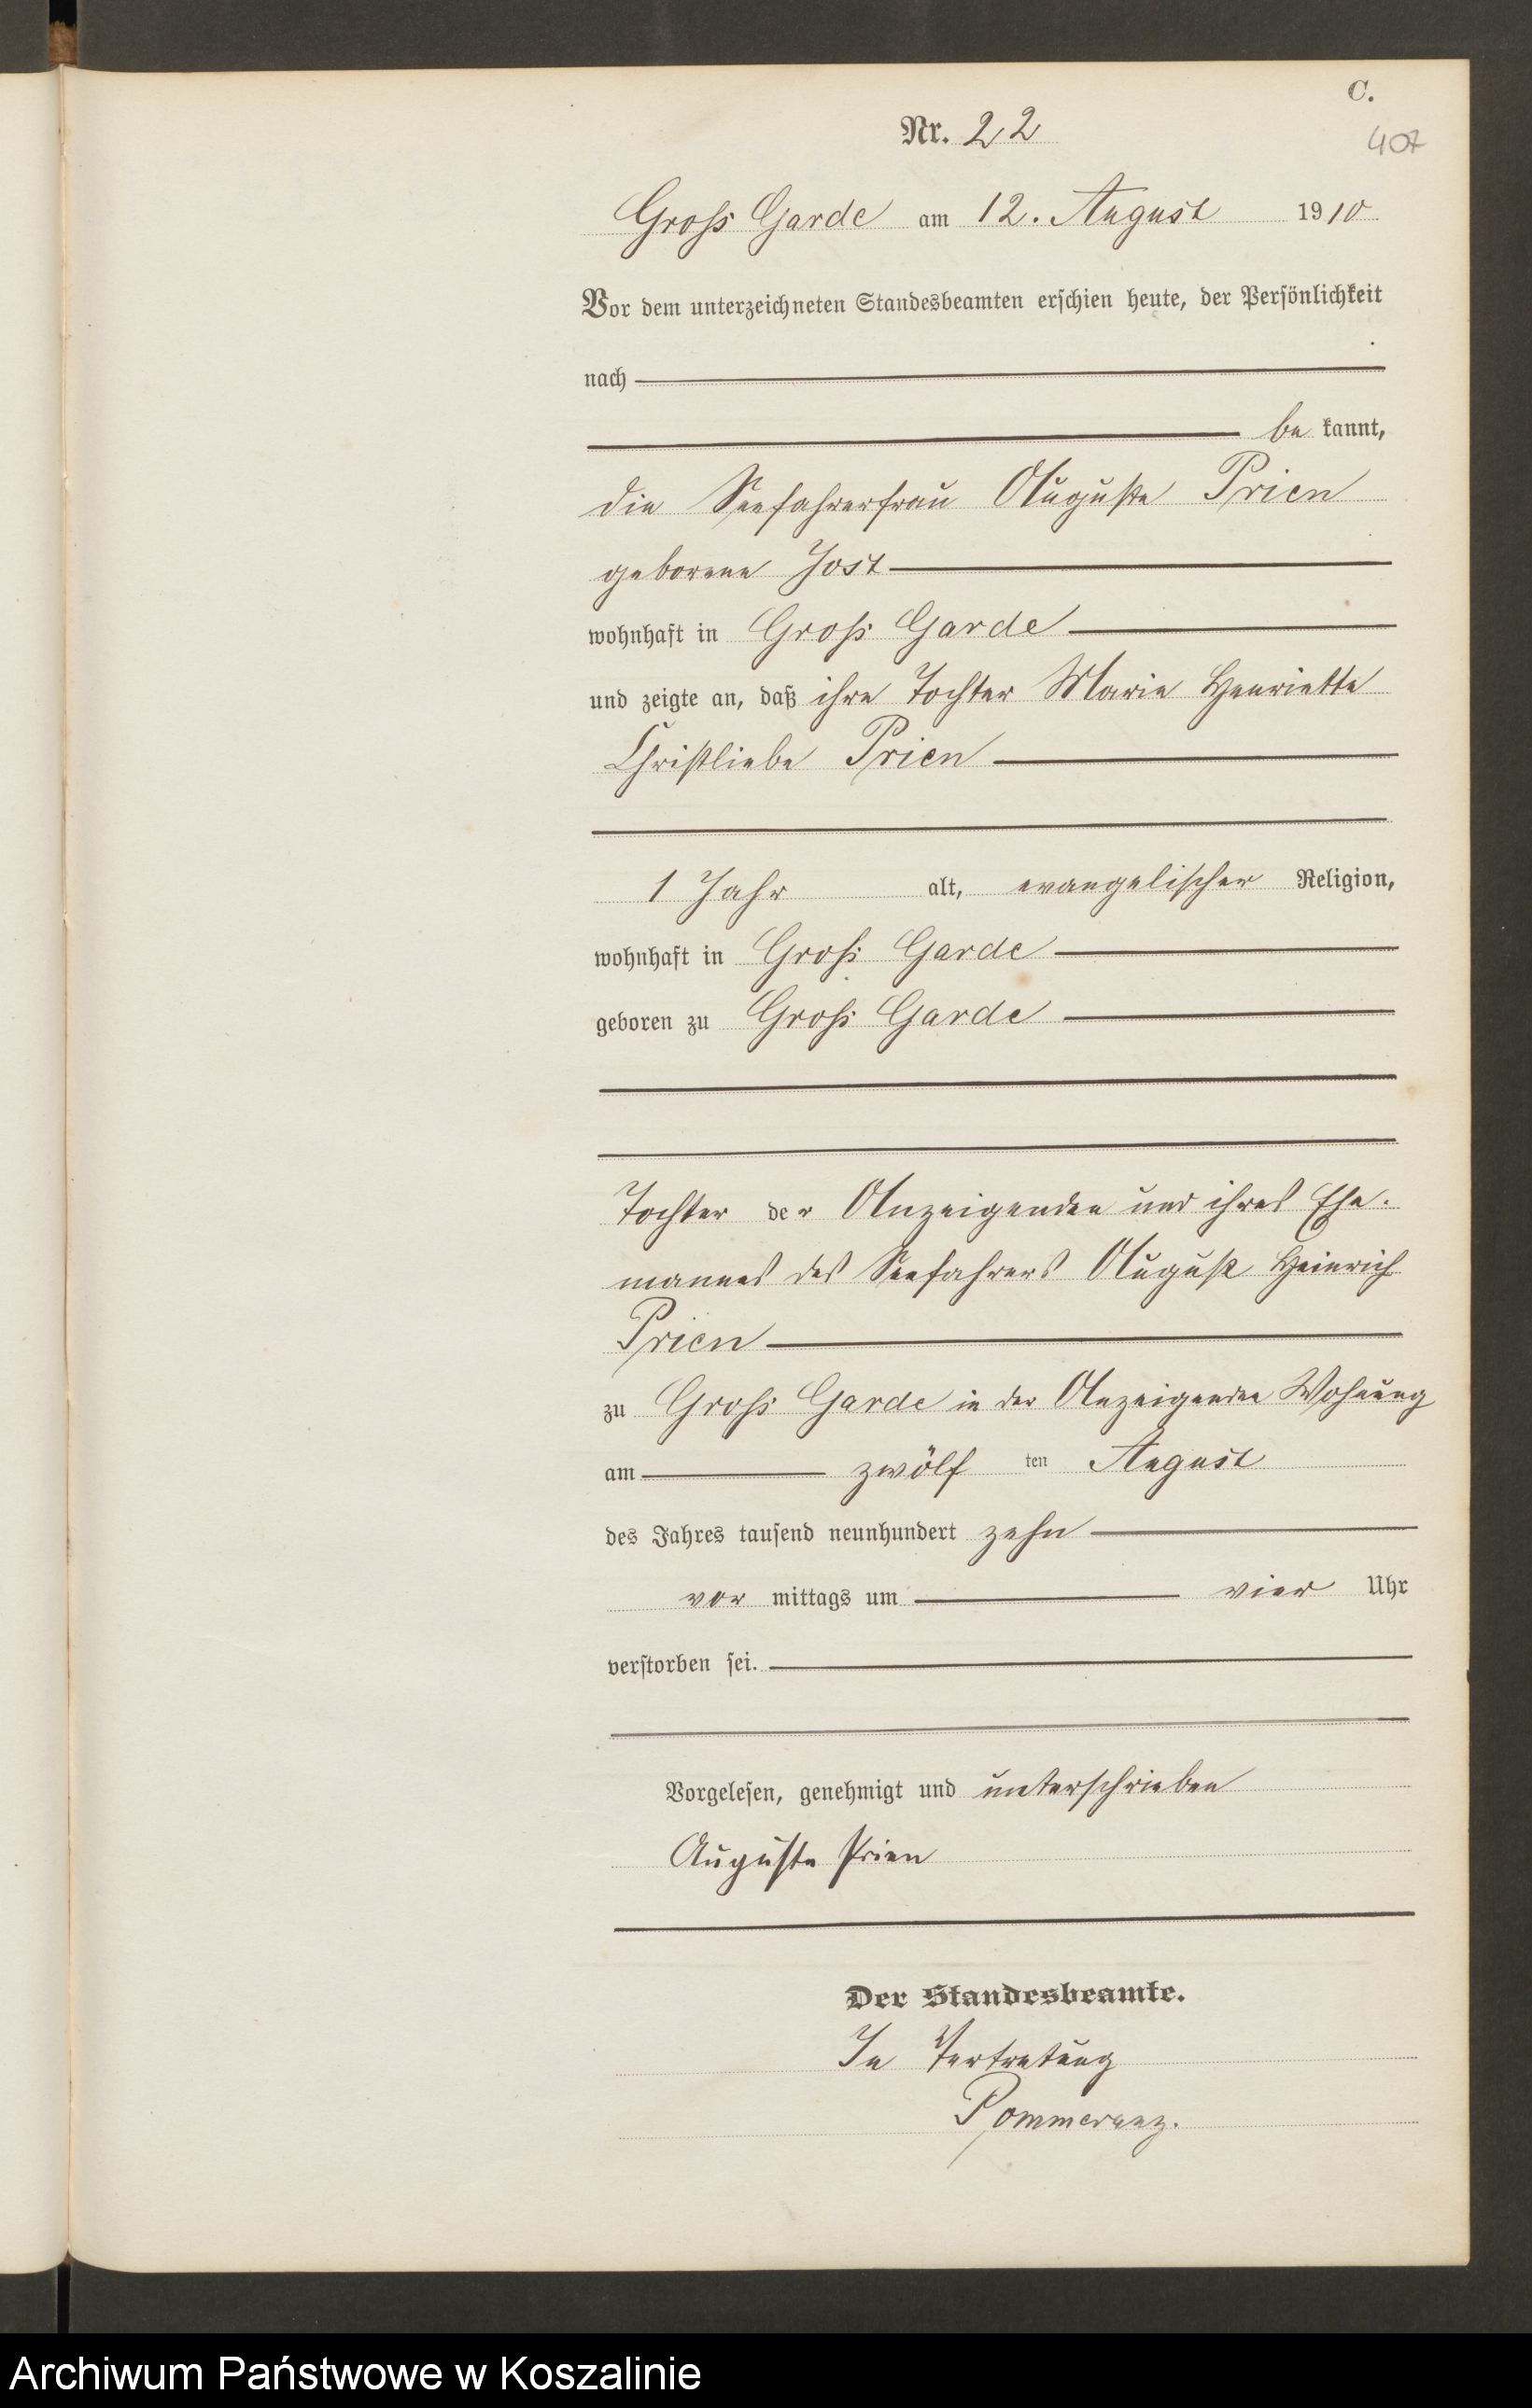 C.
Nr. 22
407
Gross Garde am 12. August 1910
Vor dem unterzeichneten Standesbeamten erschien heute, der Persönlichkeit
nach
be kannt,
die Seefahrerfrau Auguste Prien
geborene Jost
wohnhaft in Gross Garde
und zeigte an, daß ihre Tochter Marie Henriette
Christliebe Prien
1 Jahr alt, evangelischer Religion,
wohnhaft in Gross Garde
geboren zu Gross Garde
Tochter der Anzeigenden und ihres Ehe-
mannes des Seefahrers August Heinrich
Prien
zu Gross Garde in der Anzeigenden Wohnung
am zwölf ten August
des Jahres tausend neunhundert zehn
vor mittags um vier Uhr
verstorben sei.
Vorgelesen, genehmigt und unterschrieben
Auguste Prien
Der Standesbeamte.
In Vertretung
Pommerenz.
Archiwum Państwowe w Koszalinie